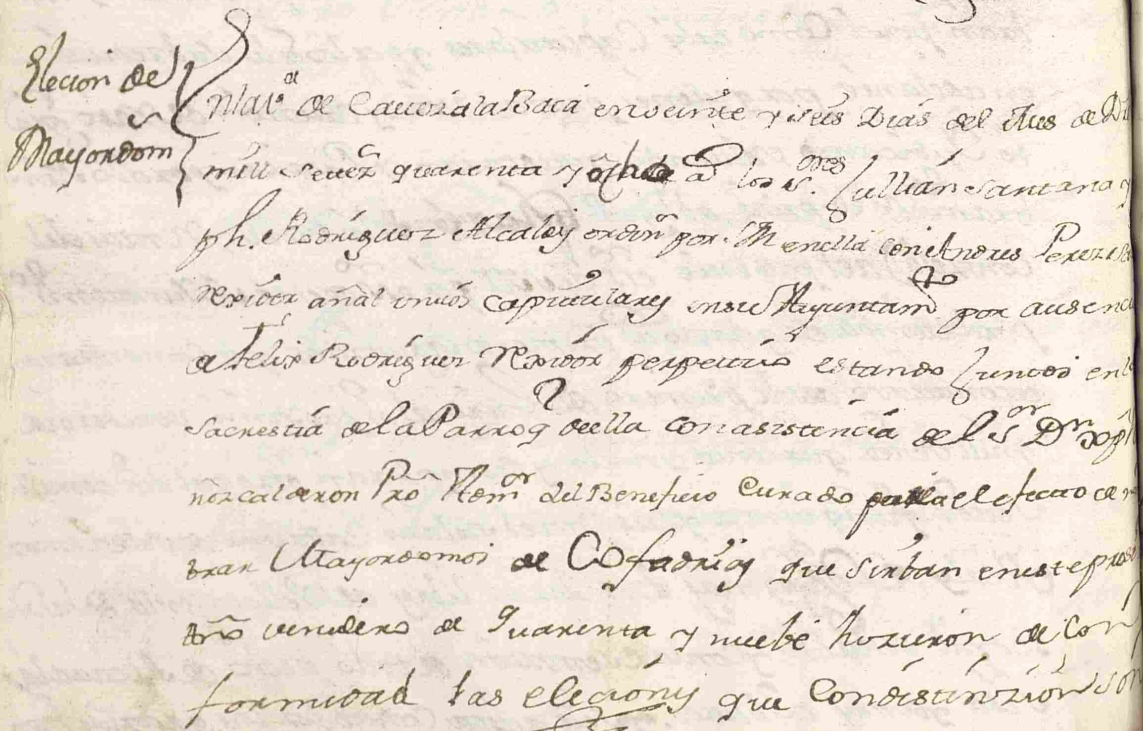 Elecion de
Mayordom
En la v.ª de Cauezalabaca en veinte y seis Dias del Mes de Di
mill setez.s quarenta y ocho a.s los s.res Jullian Santana y
ph. Rodriguez Alcaldes ordin.s por. M en ella con Andres Perez
Rexidor añal unicos capitulares en su Ayuntam.to por ausenci
de Felix Rodriguez Rexidor perpetuo estando Juntos en la
sacrestia de la Parroq de ella con asistencia del S.or D.n
nez calderon Pro Then.te del Beneficio Curado para el efecto de n
brar Mayordomos de Cofadrias que sirban en este prox
año venidero de quarenta y nuebe hizieron de con
formidad las eleciones que con distinzion son